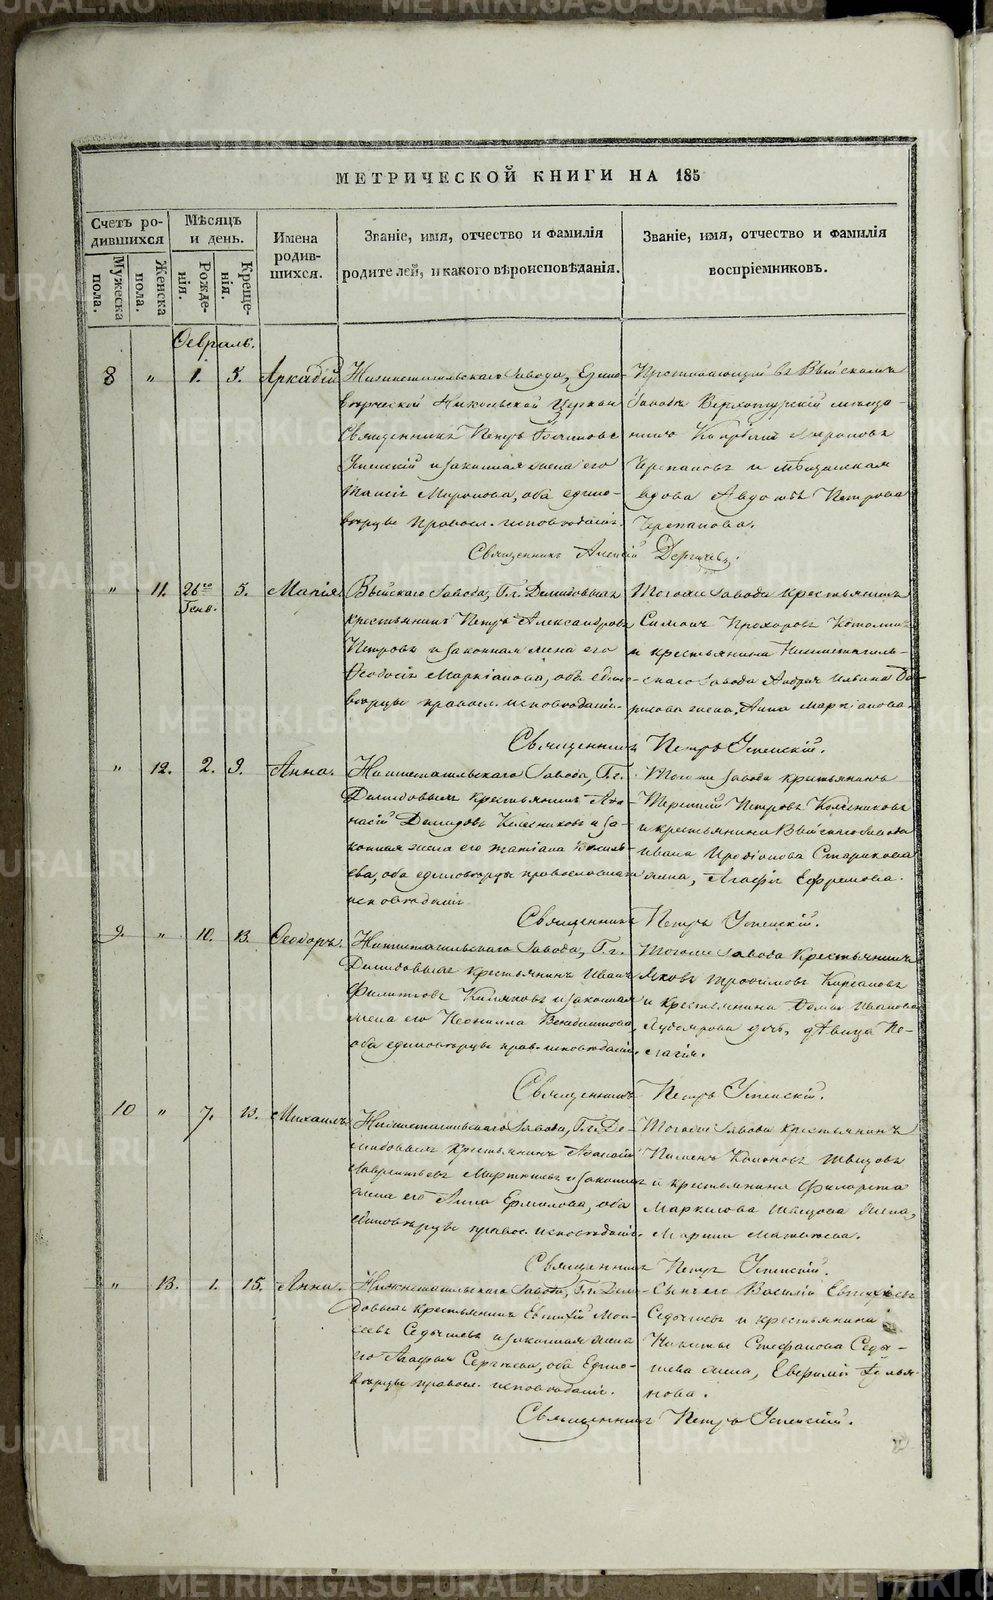 METRIKI.GASO-URAL.RU
МЕТРИЧЕСКОЙ КНИГИ НА 185
Счетъ родившихся
Мѣсяцъ и день.
Имена родившихся.
Званіе, имя, отчество и фамилія родителей, и какого вѣроисповѣданія.
Званіе, имя, отчество и фамилія воспріемниковъ.
Мужеска пола.
Женска пола.
Рожденія.
Крещенія.
Февраль.
8 " 1. 5. Аркадій
Нижнетагильскаго Завода, Едино-
вѣрческой Никольской Церкви
Священникъ Петръ
Успенскій и законная жена его
Миронова, оба едино-
вѣрцы правосл. исповѣданія.
Проживающій въ Выйскомъ
Заводѣ Верхотурскій мѣща-
нинъ Мироновъ
Черепановъ и мѣщанская
вдова Авдотья Петрова
Черепанова.
Священникъ Алексій
" 11. 26го Генв. 5. Марія
Выйскаго Завода, Г.г. Демидовыхъ
крестьянинъ Петръ Александровъ
Петровъ и законная жена его
Маркіанова, оба едино-
вѣрцы правосл. исповѣданія.
Тогоже Завода крестьянинъ
Симонъ Прохоровъ
и крестьянина Нижнетагиль-
скаго Завода Андрея Ильина Бо-
рисова жена, Анна Маркіанова.
Священникъ Петръ Успенскій.
" 12. 2. 9. Анна.
Нижнетагильскаго Завода, Г.г.
Демидовыхъ крестьянинъ Афа-
насій Демидовъ Колесниковъ и за-
конная жена его Татіана Василь-
ева, оба единовѣрцы православнаго
исповѣданія
Тогоже Завода крестьянинъ
Терентій Петровъ Колесниковъ
и крестьянина Выйскаго Завода
Ивана Иродіонова Старикова
жена, Агафія Ефремова.
Священникъ Петръ Успенскій.
9. " 10. 13. Ѳеодоръ.
Нижнетагильскаго Завода, Г.г.
Демидовыхъ крестьянинъ Иванъ
Филиповъ и законная
жена его Неонилла
оба единовѣрцы прав. исповѣданія.
Тогоже Завода крестьянинъ
Яковъ Трофимовъ Кирсановъ
и крестьянина Ѳомы Иванова
дочь, дѣвица Пе-
лагія.
Священникъ Петръ Успенскій.
10 " 7. 13. Михаилъ
Нижнетагильскаго Завода, Г.г. Де-
мидовыхъ крестьянинъ Афанасій
Лаврентьевъ и законная
жена его Анна Ермолова, оба
единовѣрцы правос. исповѣданія.
Тогоже Завода крестьянинъ
Пименъ Швецовъ
и крестьянина Филарета
Маркелова Швецова жена,
Марина Матвѣева.
Священникъ Петръ Успенскій.
" 13. 1. 15. Анна.
Нижнетагильскаго Завода, Г.г. Деми-
довыхъ крестьянинъ Евтихій Мои-
сеевъ и законная жена
его Агафья Сергѣева, оба Едино-
вѣрцы правосл. исповѣданія.
Сынъ его Василій Евтихіевъ
и крестьянина
Никиты Стефанова
жена, Емелья-
нова.
Священникъ Петръ Успенскій.